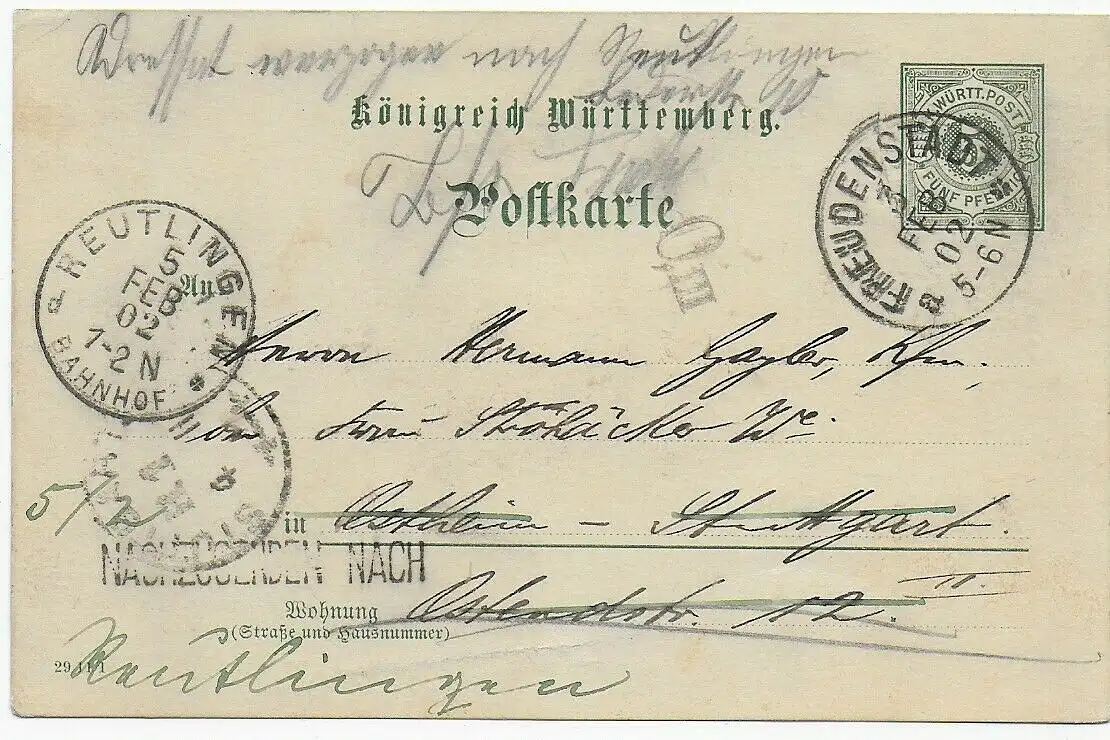 Adressat verzogen nach Reutlingen
Königreich Württemberg.
WÜRTT. POST
5
FÜNF PFENNIG
Postkarte
FREUDENSTADT
3
FEB
02
5-6N
REUTLINGEN
5
FEB
02
1-2 N
BAHNHOF
An
Herrn Hermann Gayler, Kfm.
bei Frau Ströhäcker We
5/2
in Ostheim – Stuttgart.
NACHZUSENDEN NACH
Wohnung Ostendstr. 12. II.
(Straße und Hausnummer)
Reutlingen